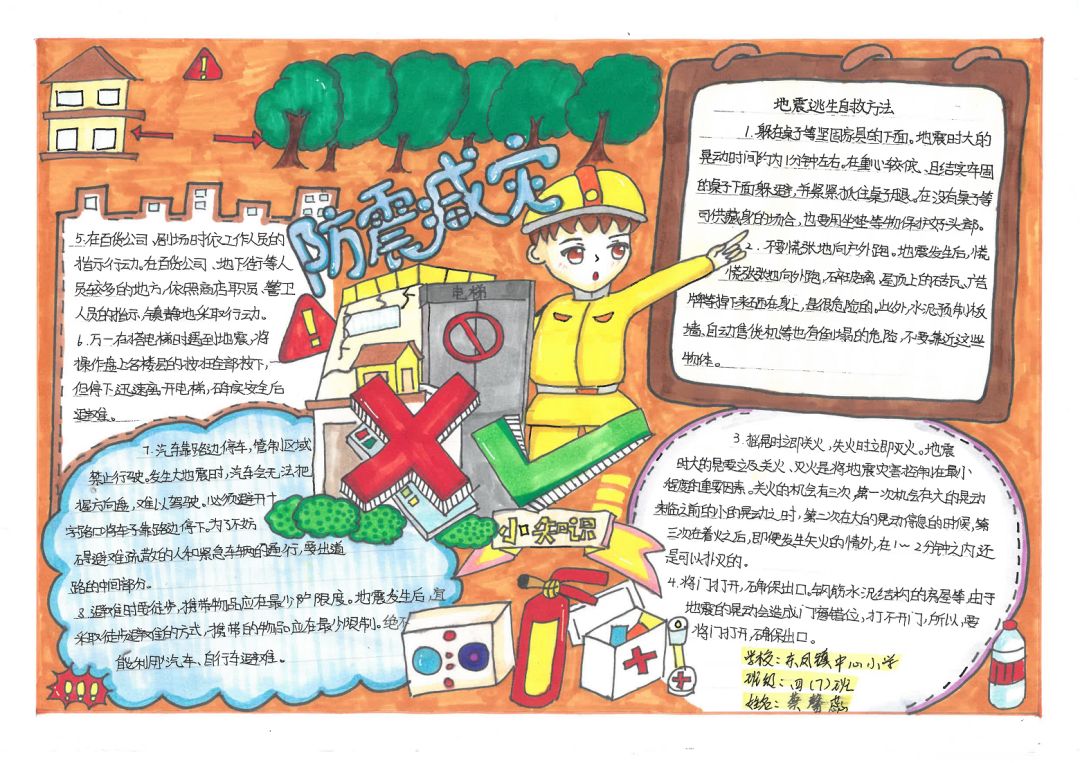 防震减灾
地震逃生自救方法
1.躲在桌子等坚固家具的下面。地震时大的
晃动时间约为1分钟左右。在重心较低、且结实牢固
的桌子下面躲避,并紧紧抓住桌子腿。在没有桌子等
可供藏身的场合,也要用坐垫等物保护好头部。
2.不要慌张地向户外跑。地震发生后,慌
慌张张地向外跑,碎玻璃、屋顶上的砖瓦、广告
牌等掉下来砸在身上,是很危险的。此外水泥预制板
墙、自动售货机等也有倒塌的危险,不要靠近这些
物体。
5.在百货公司、剧场时依工作人员的
指示行动。在百货公司、地下街等人
员较多的地方,依照商店职员、警卫
人员的指示,镇静地采取行动。
6.万一在搭电梯时遇到地震,将
操作盘上各楼层的按扭全部按下,
但停下迅速离开电梯,确实安全后
避难。
电梯
7.汽车靠路边停车,管制区域
禁止行驶。发生大地震时,汽车会无法把
握方向盘,难以驾驶。必须避开十
字路口将车子靠路边停下。为了不妨
碍避难疏散的人和紧急车辆的通行,要让道
路的中间部分。
8.避难时要徒步,携带物品应在最少限度。地震发生后,宜
采取徒步避难的方式,携带的物品应在最少限制。绝不
能利用汽车、自行车避难。
小知识
3.摇晃时立即关火,失火时立即灭火。地震
时大的晃要立及关火、灭火是将地震灾害控制在最小
程度的重要因素。关火的机会有三次,第一次机会在大的晃动
来临之前的小的晃动之时,第二次在大的晃动停息的时候,第
三次在着火之后,即便发生失火的情外,在1~2分钟之内,还
是可以扑灭的。
4.将门打开,确保出口。钢筋水泥结构的房屋等,由于
地震的晃动会造成门窗错位,打不开门,所以,要
将门打开,确保出口。
学校:东凤镇中心小学
班级:四(7)班
姓名:蔡馨